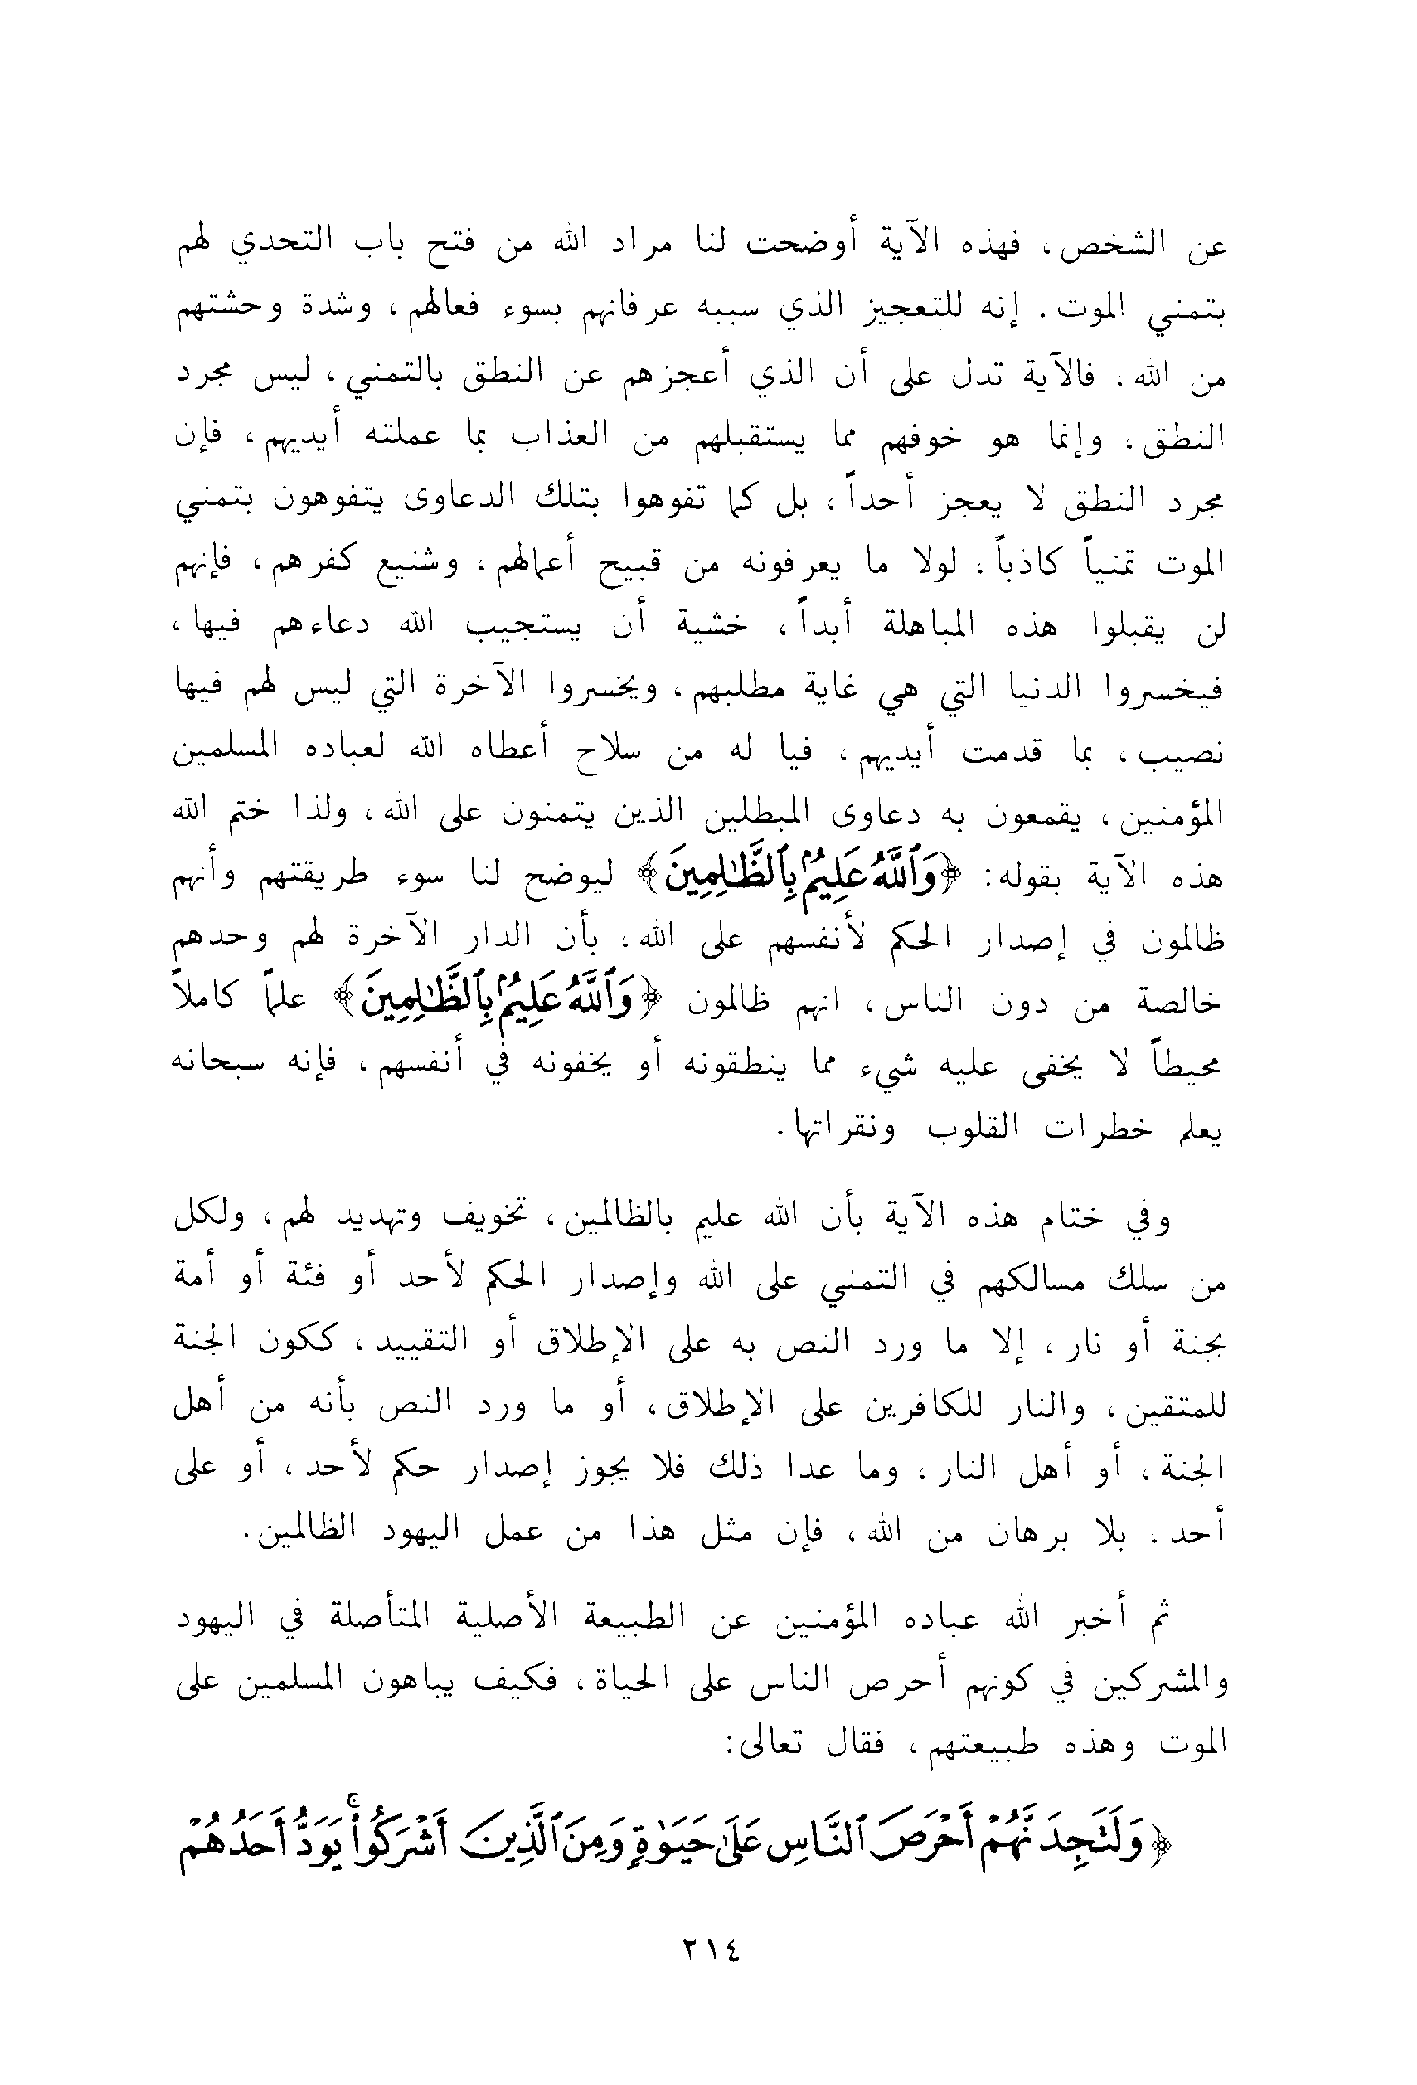 عن الشخص، فهذه الآية أوضحت لنا مراد الله من فتح باب التحدي لهم
بتمني الموت. إنه للتعجيز الذي سببه عرفانهم بسوء فعالهم، وشدة وحشتهم
من الله. فالآية تدل على أن الذي أعجزهم عن النطق بالتمني، ليس مجرد
النطق، وإنما هو خوفهم مما يستقبلهم من العذاب بما عملته أيديهم، فإن
مجرد النطق لا يعجز أحداً، بل كما تفوهوا بتلك الدعاوى يتفوهون بتمني
الموت تمنياً كاذباً، لولا ما يعرفونه من قبيح أعمالهم، وشنيع كفرهم، فإنهم
لن يقبلوا هذه المباهلة أبداً، خشية أن يستجيب الله دعاءهم فيها،
فيخسروا الدنيا التي هي غاية مطلبهم، ويخسروا الآخرة التي ليس لهم فيها
نصيب، بما قدمت أيديهم، فيا له من سلاح أعطاه الله لعباده المسلمين
المؤمنين، يقمعون به دعاوى المبطلين الذين يتمنون على الله، ولذا ختم الله
هذه الآية بقوله: ﴿وَٱللَّهُ عَلِيمٌۢ بِٱلظَّـٰلِمِينَ﴾ ليوضح لنا سوء طريقتهم وأنهم
ظالمون في إصدار الحكم لأنفسهم على الله، بأن الدار الآخرة لهم وحدهم
خالصة من دون الناس، انهم ظالمون ﴿وَٱللَّهُ عَلِيمٌۢ بِٱلظَّـٰلِمِينَ﴾ علماً كاملاً
محيطاً لا يخفى عليه شيء مما ينطقونه أو يخفونه في أنفسهم، فإنه سبحانه
يعلم خطرات القلوب ونقراتها.
وفي ختام هذه الآية بأن الله عليم بالظالمين، تخويف وتهديد لهم، ولكل
من سلك مسالكهم في التمني على الله وإصدار الحكم لأحد أو فئة أو أمة
بجنة أو نار، إلا ما ورد النص به على الإطلاق أو التقييد، ككون الجنة
للمتقين، والنار للكافرين على الإطلاق، أو ما ورد النص بأنه من أهل
الجنة، أو أهل النار، وما عدا ذلك فلا يجوز إصدار حكم لأحد، أو على
أحد. بلا برهان من الله، فإن مثل هذا من عمل اليهود الظالمين.
ثم أخبر الله عباده المؤمنين عن الطبيعة الأصلية المتأصلة في اليهود
والمشركين في كونهم أحرص الناس على الحياة، فكيف يباهون المسلمين على
الموت وهذه طبيعتهم، فقال تعالى:
﴿وَلَتَجِدَنَّهُمْ أَحْرَصَ ٱلنَّاسِ عَلَىٰ حَيَوٰةٍ وَمِنَ ٱلَّذِينَ أَشْرَكُوا۟ ۚ يَوَدُّ أَحَدُهُمْ
٢١٤